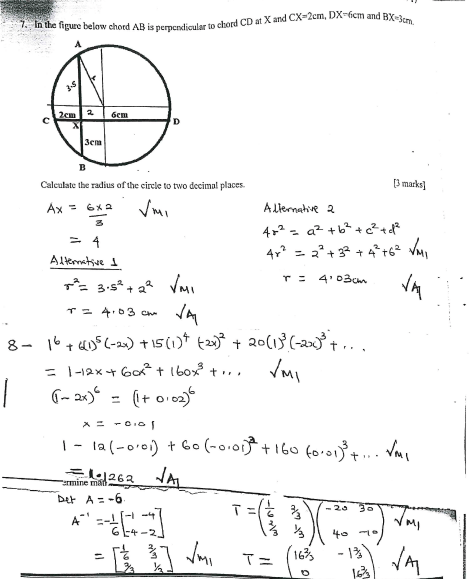 7. In the figure below chord AB is perpendicular to chord CD at X and CX=2cm, DX=6cm and BX=3cm.
A
3.5
r
2cm 2 6cm
C X D
3cm
B
Calculate the radius of the circle to two decimal places. [3 marks]
Ax = 6x2/3 √M1
= 4
Alternative 1
r² = 3.5² + 2² √M1
r = 4.03 cm √A1
Alternative 2
4r² = a² + b² + c² + d²
4r² = 2² + 3² + 4² + 6² √M1
r = 4.03cm √A1
8 - 1⁶ + 6(1)⁵(-2x) + 15(1)⁴(-2x)² + 20(1)³(-2x)³ + ...
= 1-12x + 60x² + 160x³ + ... √M1
(1-2x)⁶ = (1+0.02)⁶
x = -0.01
1 - 12(-0.01) + 60(-0.01)² + 160(0.01)³ + ... √M1
= 1.1262 √A1
Det A = -6
A⁻¹ = -1/6 [-1 -4
-4 -2]
= [1/6 2/3
2/3 1/3] √M1
T = (1/6 2/3
2/3 1/3) (-20 30
40 -10) √M1
T = (16⅔ -1⅔
0 16⅔) √A1